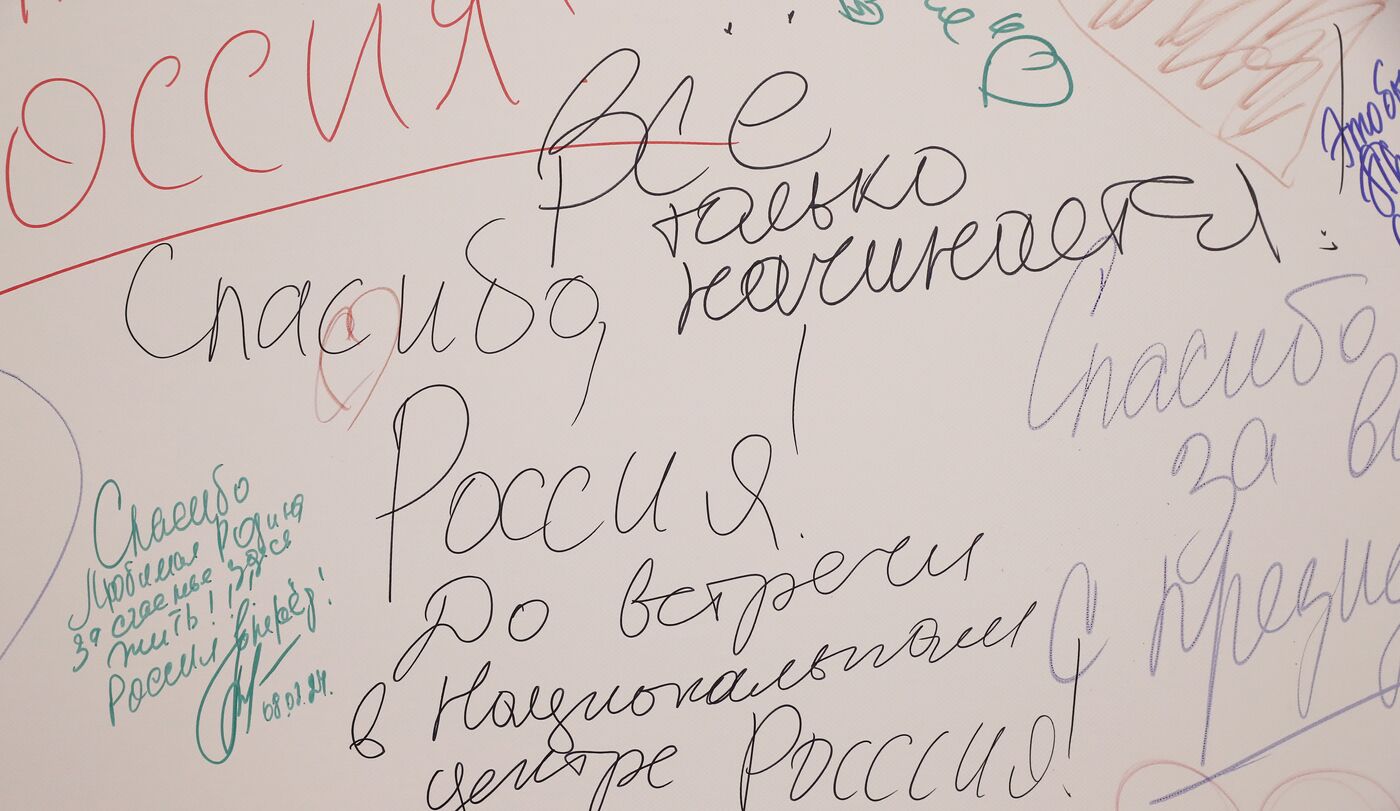 ОССИЯ
Всё
только
начинается!
Спасибо,
Россия!
До встречи
в Национальном
центре Росссия!
Спасибо
Любимая Родина
За счастье здесь
жить!!!!
Россия вперёд!
08.07.24.
Спасибо
за
С